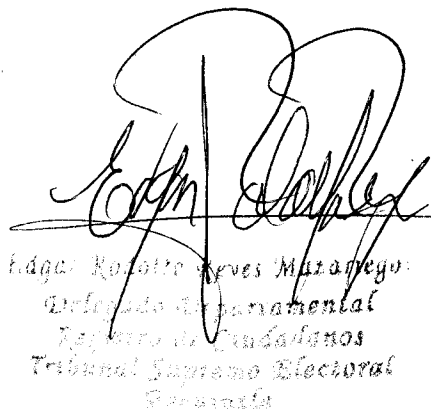 Edgar Rodolfo Reyes Mazariegos
Delegado Departamental
Registro de Ciudadanos
Tribunal Supremo Electoral